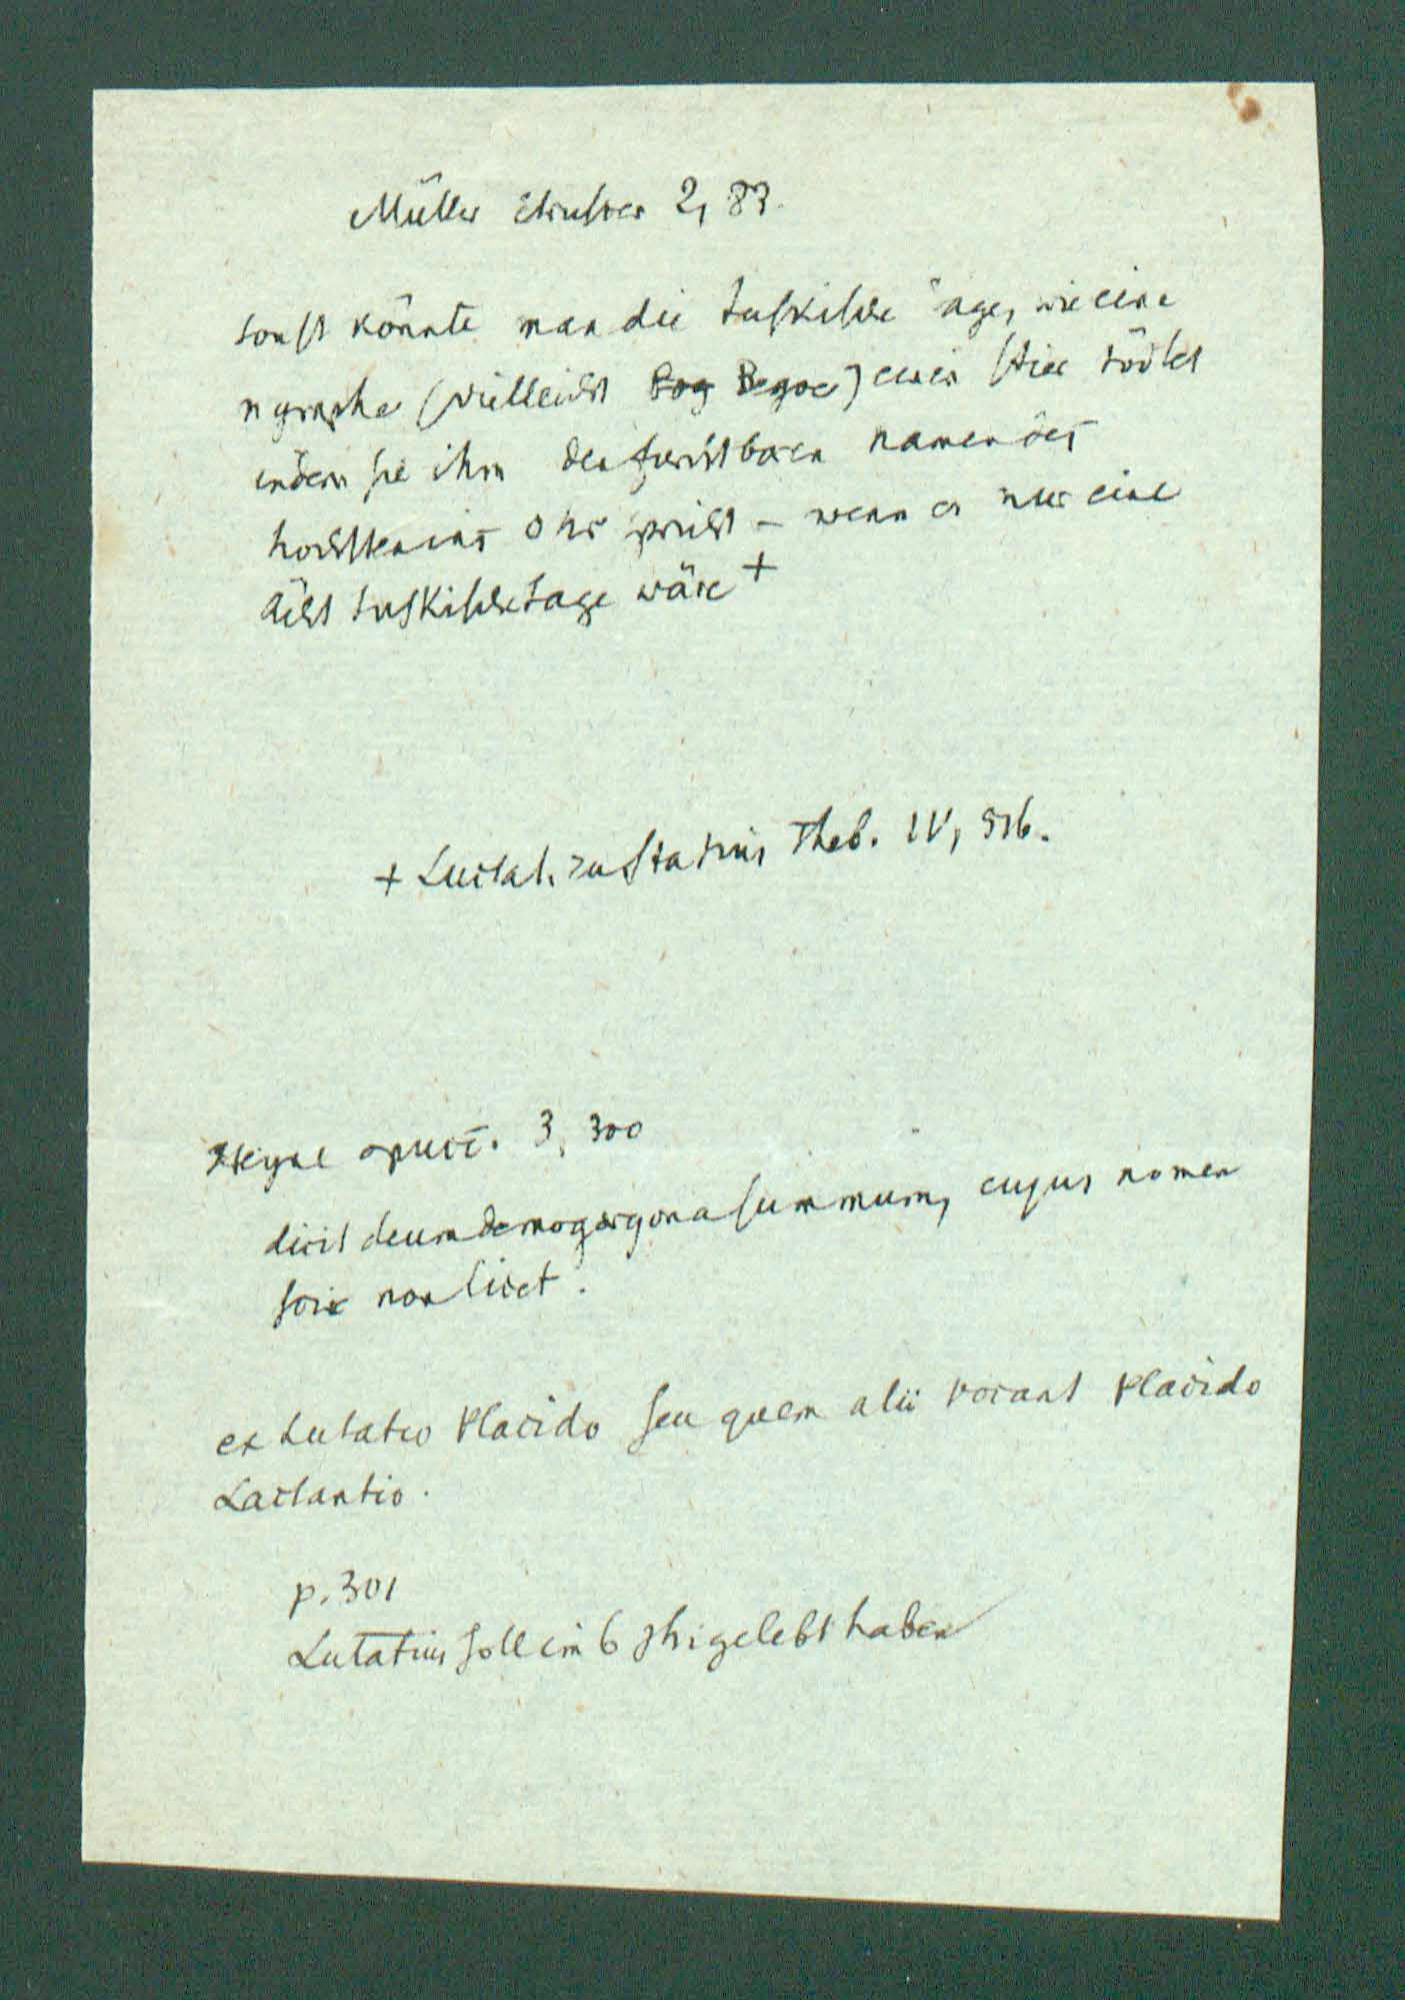 Müller Etrusker 2, 83.
sonst könnte man die tuskische sage, wie eine
nymphe (vielleicht Bog Begoe) einen stier tödtet
indem sie ihm den furchtbaren namen des
höchsten ins ohr spricht – wenn es nur eine
ächt tuskische sage wäre +
+ Luctat. zu Statius Theb. IV, 516.
Heyne opusc. 3, 300
dicit deum demogorgona summum, cujus nomen
scire non licet.
ex Lutatio Placido seu quem alii vocant Placido
Lactantio.
p. 301
Lutatius soll im 6 jh. gelebt haben